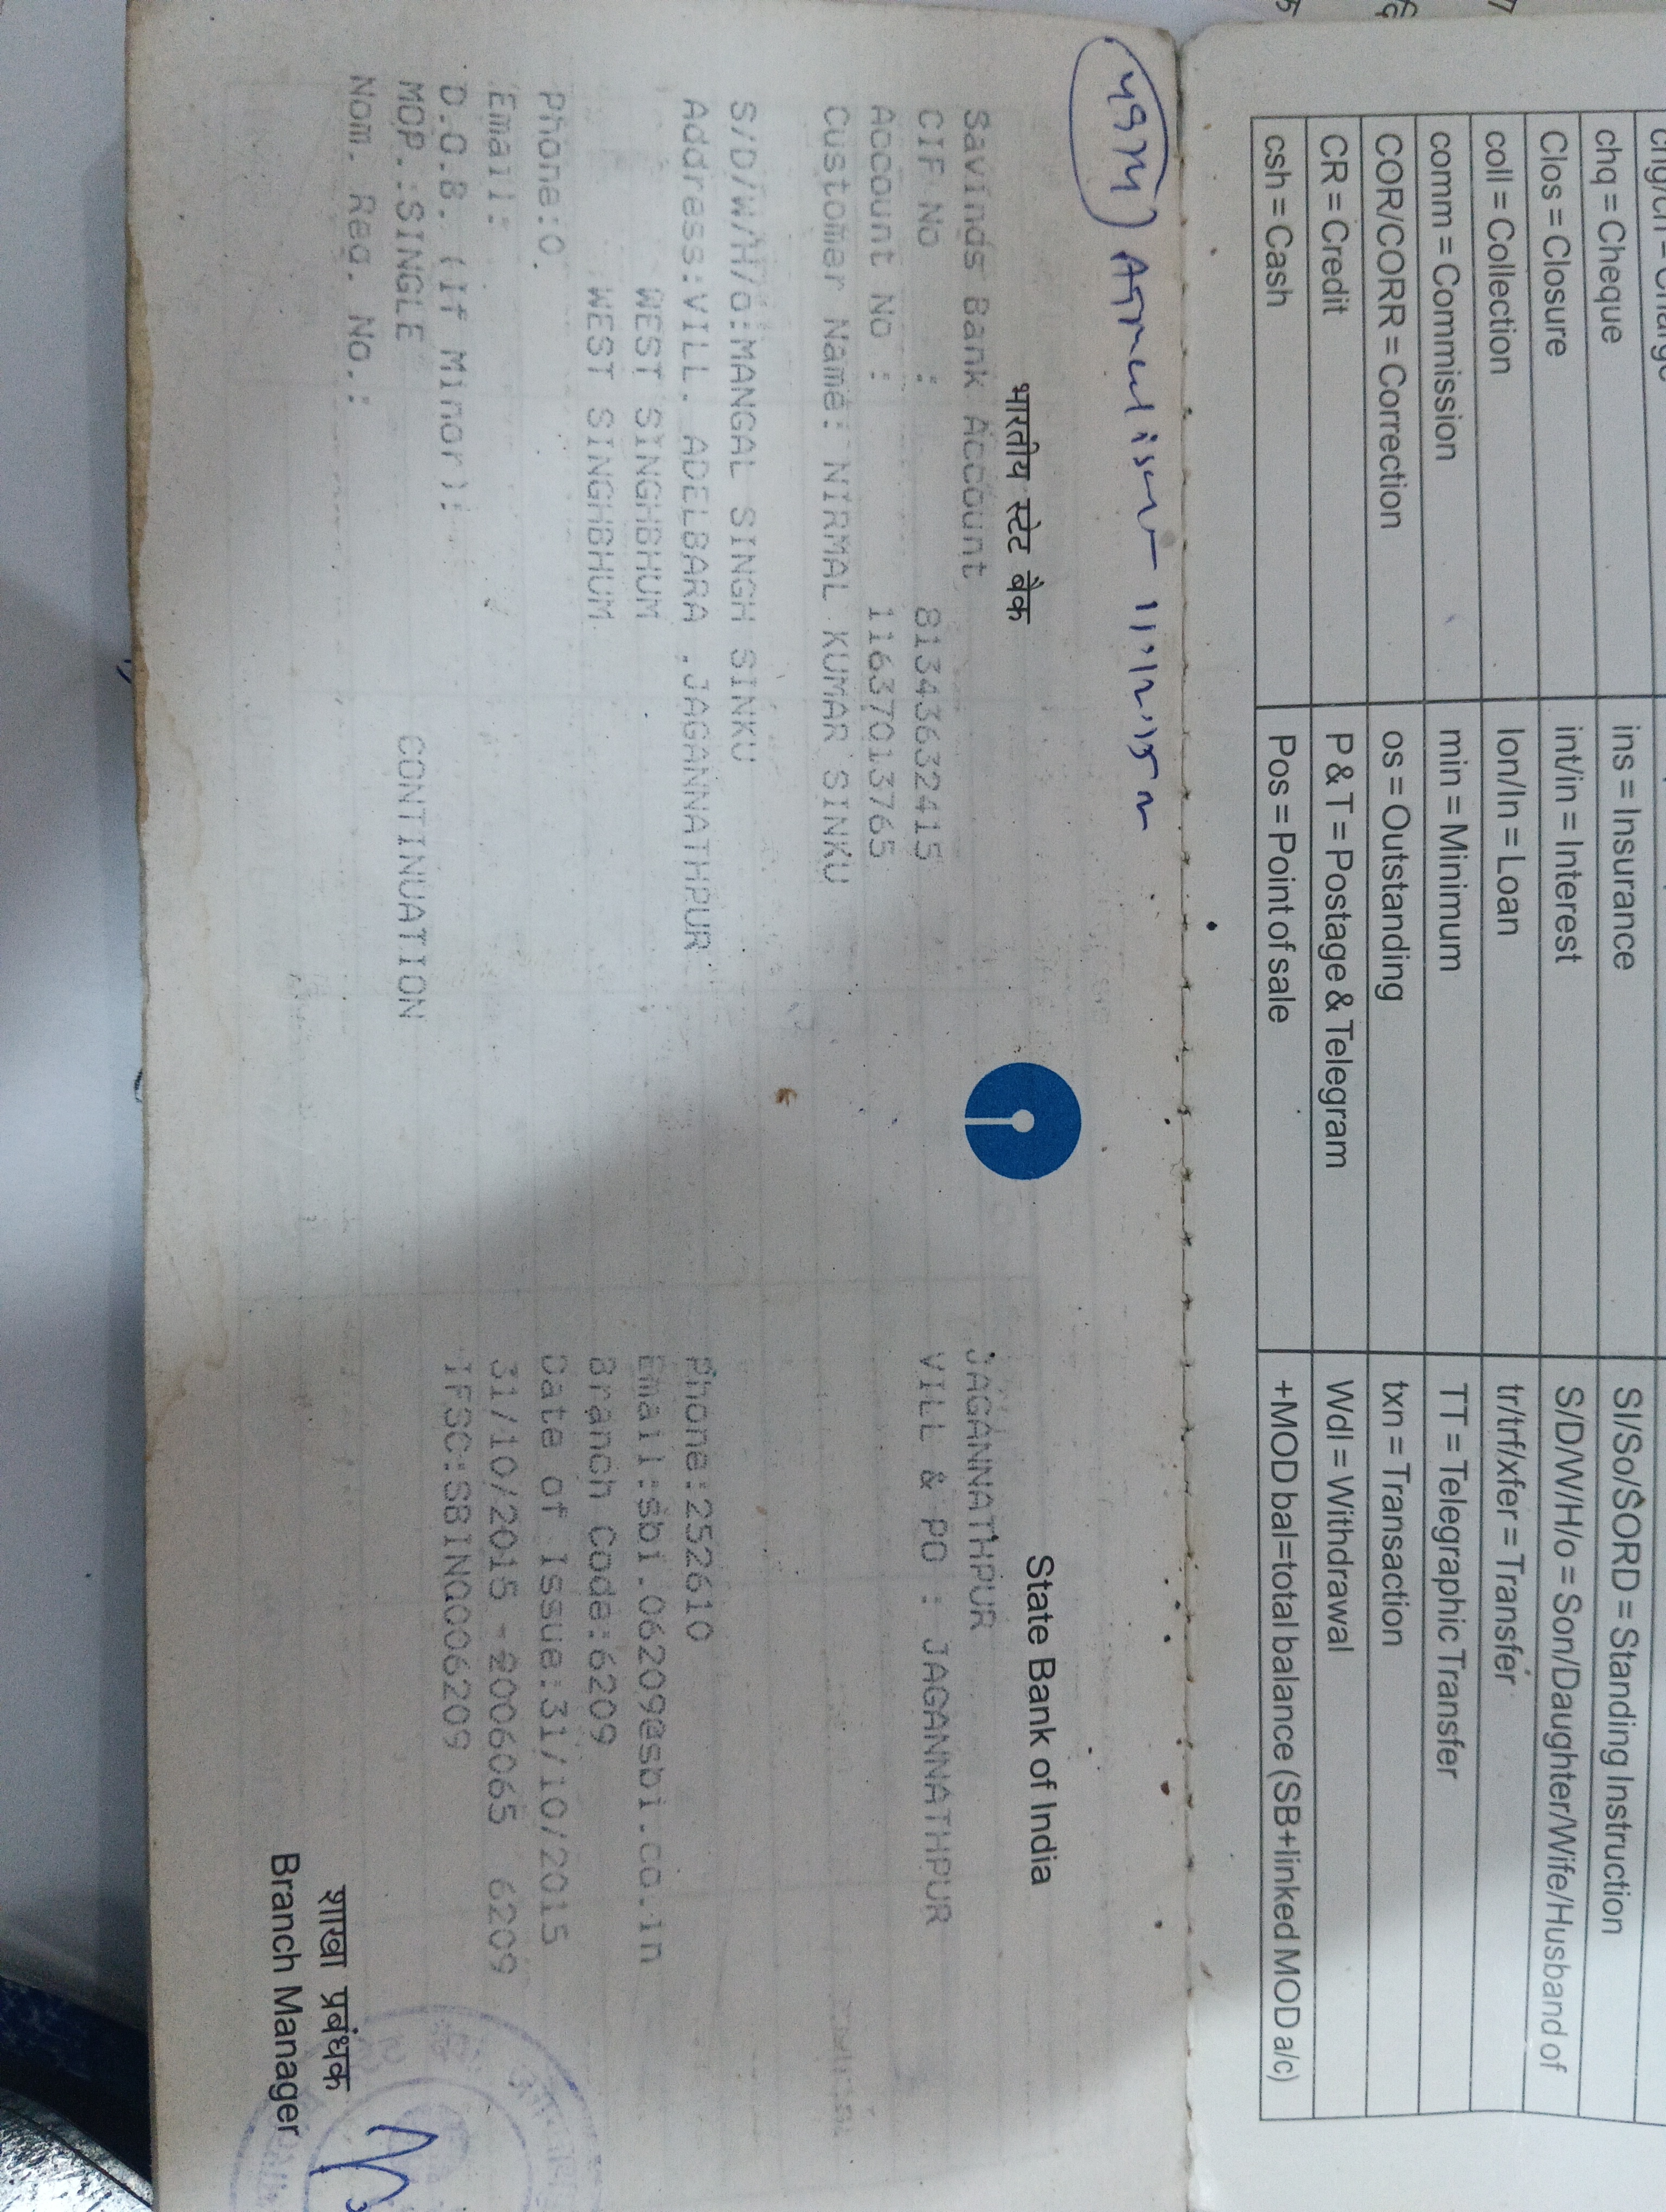 chq = Cheque
ins = Insurance
SI/So/SORD = Standing Instruction
Clos = Closure
int/in = Interest
S/D/W/H/o = Son/Daughter/Wife/Husband of
coll = Collection
lon/ln = Loan
tr/trf/xfer = Transfer
comm = Commission
min = Minimum
TT = Telegraphic Transfer
COR/CORR = Correction
os = Outstanding
txn = Transaction
CR = Credit
P & T = Postage & Telegram
Wdl = Withdrawal
csh = Cash
Pos = Point of sale
+MOD bal=total balance (SB+linked MOD a/c)
भारतीय स्टेट बैंक
State Bank of India
Savings Bank Account
JAGANNATHPUR
CIF No : 81343632415
VILL & PO : JAGANNATHPUR
Account No : 11637013765
Customer Name: NIRMAL KUMAR SINKU
S/D/W/H/o:MANGAL SINGH SINKU
Address:VILL. ADELBARA ,JAGANNATHPUR
Phone:252610
WEST SINGHBHUM
Email:sbi.06209@sbi.co.in
WEST SINGHBHUM
Branch Code:6209
Phone:0.
Date of Issue:31/10/2015
Email:
31/10/2015 - 2006065 6209
D.O.B. (If Minor):
IFSC:SBIN0006209
MOP.:SINGLE
CONTINUATION
Nom. Reg. No.:
शाखा प्रबंधक
Branch Manager